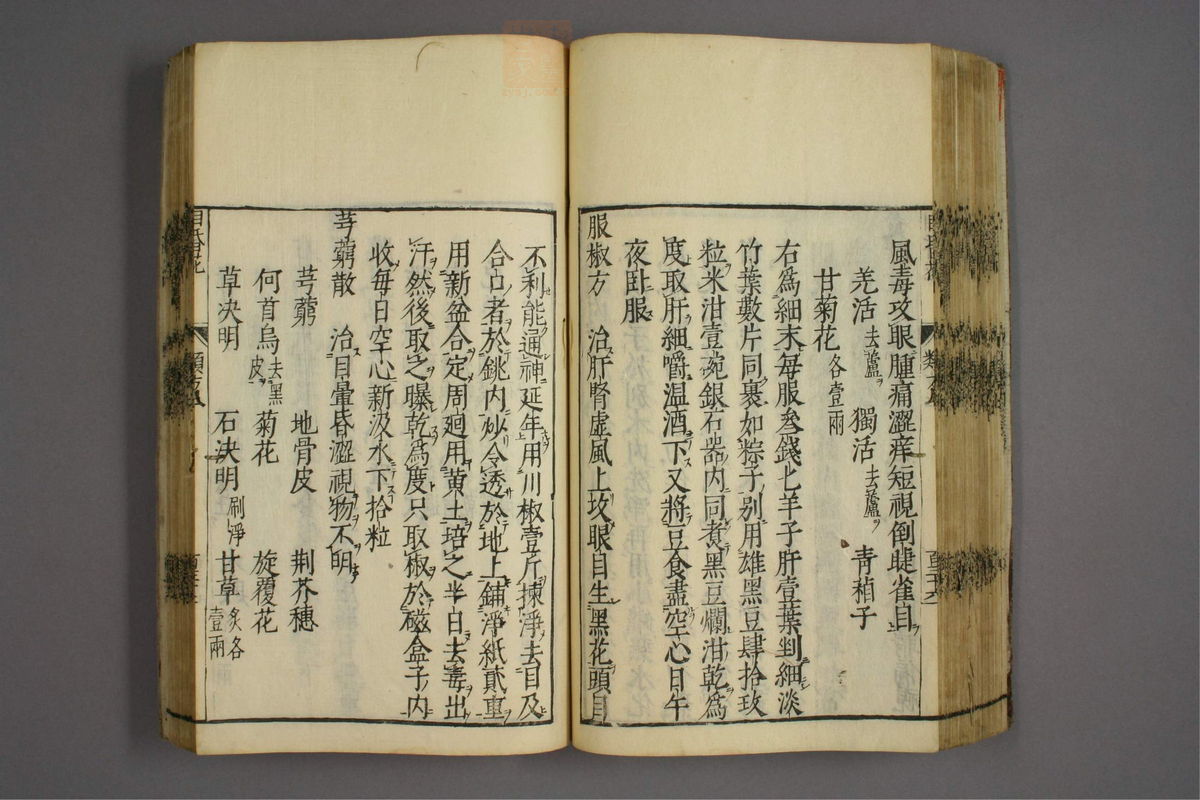 風毒攻眼腫痛澀痒短視倒睫雀目
羌活去蘆 獨活去蘆 青葙子
甘菊花各壹兩
右為細末每服叄錢匕羊子肝壹葉剉細淡
竹葉數片同裹如粽子別用雄黑豆肆拾玫
粒米泔壹琬銀石器内同煮黑豆爛泔乾為
度取肝細嚼温酒下又將豆食盡空心日午
夜卧服
服椒方 治肝腎虛風上攻眼目生黑花頭目
不利能通神延年用川椒壹斤揀淨去目及
合口者於銚内炒令透於地上鋪淨紙貳重
用新盆合定周廻用黄土培之半日去毒出
汗然後取之曝乾為度只取椒於磁盒子内
收每日空心新汲水下拾粒
芎藭散 治目暈昏澀視物不明
芎藭 地骨皮 荆芥穗
何首烏去黑皮 菊花 旋覆花
草决明 石决明刷淨 甘草炙各壹兩